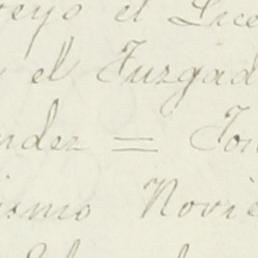 el Lice
el Juzgad
ndez = Jo
ismo Novie